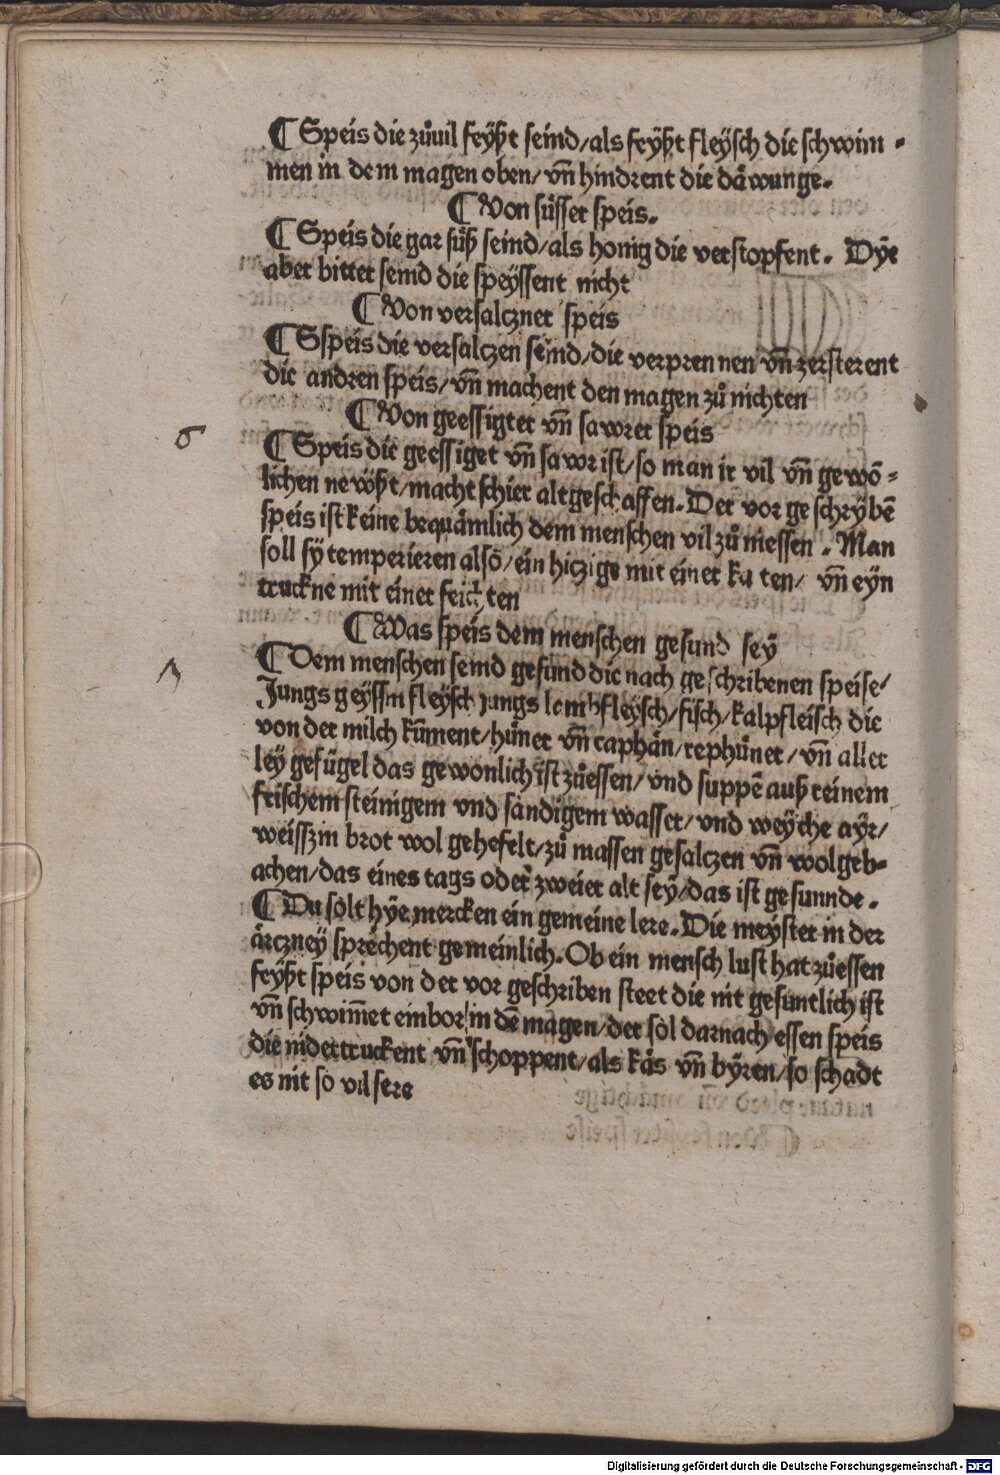 ¶ Speis die zůuil feyßt seind/als feyßt fleysch die schwim-
men in dem magen oben/vñ hindrent die dåwunge.
¶ Von sůsser speis.
¶ Speis die gar sůß seind/als honig die verstopfent. Dye
aber bitter seind die speyssent nicht
¶ Von versalczner speis
¶ Sspeis die versalczen seind/die verprennen vñ zersterent
die andren speis/vñ machent den magen zů nichten
¶ Von geessigter vñ sawrer speis
6
¶ Speis die geessiget vñ sawr ist/so man ir vil vñ gewö-
lichen newßt/macht schier alt geschaffen. Der vor geschrybē
speis ist keine bequåmlich dem menschen vil zů niessen. Man
soll sy temperieren alsō/ein hiczige mit einer kalten/ vñ eyn
truckne mit einer feichten
¶ Was speis dem menschen gesund sey
¶ Dem menschen seind gesund die nach geschribenen speise/
Jungs geyssin fleysch jungs lambfleysch/fisch/kalpfleisch die
von der milch kūment/hůner vñ caphån/rephůner/vñ aller
ley gefügel das gewonlich ist zůessen/vnd suppē auß reinem
frischem steinigem vnd sandigem wasser/vnd weyche ayr/
weisszin brot wol gehefelt/zů massen gesalczen vñ wolgeb-
achen/das eines tags oder zweier alt sey/das ist gesunnde.
¶ Du solt hye mercken ein gemeine lere. Die meyster in der
årczney sprechent gemeinlich. Ob ein mensch lust hat zůessen
feyßt speis von der vor geschriben steet die nit gesuntlich ist
vñ schwim̄et embor in dē magen/der sol darnach essen speis
die nidertruckent vñ schoppent/als kås vñ byren/so schadt
es nit so vil sere
Digitalisierung gefördert durch die Deutsche Forschungsgemeinschaft - DFG